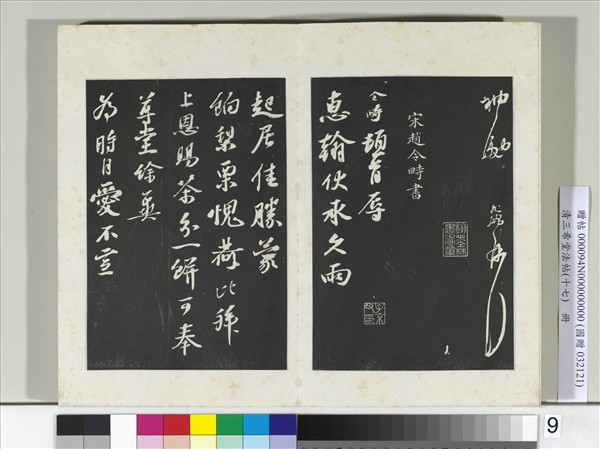 宋趙令畤書
令畤頓首辱
惠翰伏承久雨
起居佳勝蒙
餉梨栗愧荷比拜
上恩賜茶分一餅可奉
尊堂餘冀
為時自愛不宣
贈帖 000094N000000000 (國贈 032121)
清三希堂法帖(十七) 冊
9